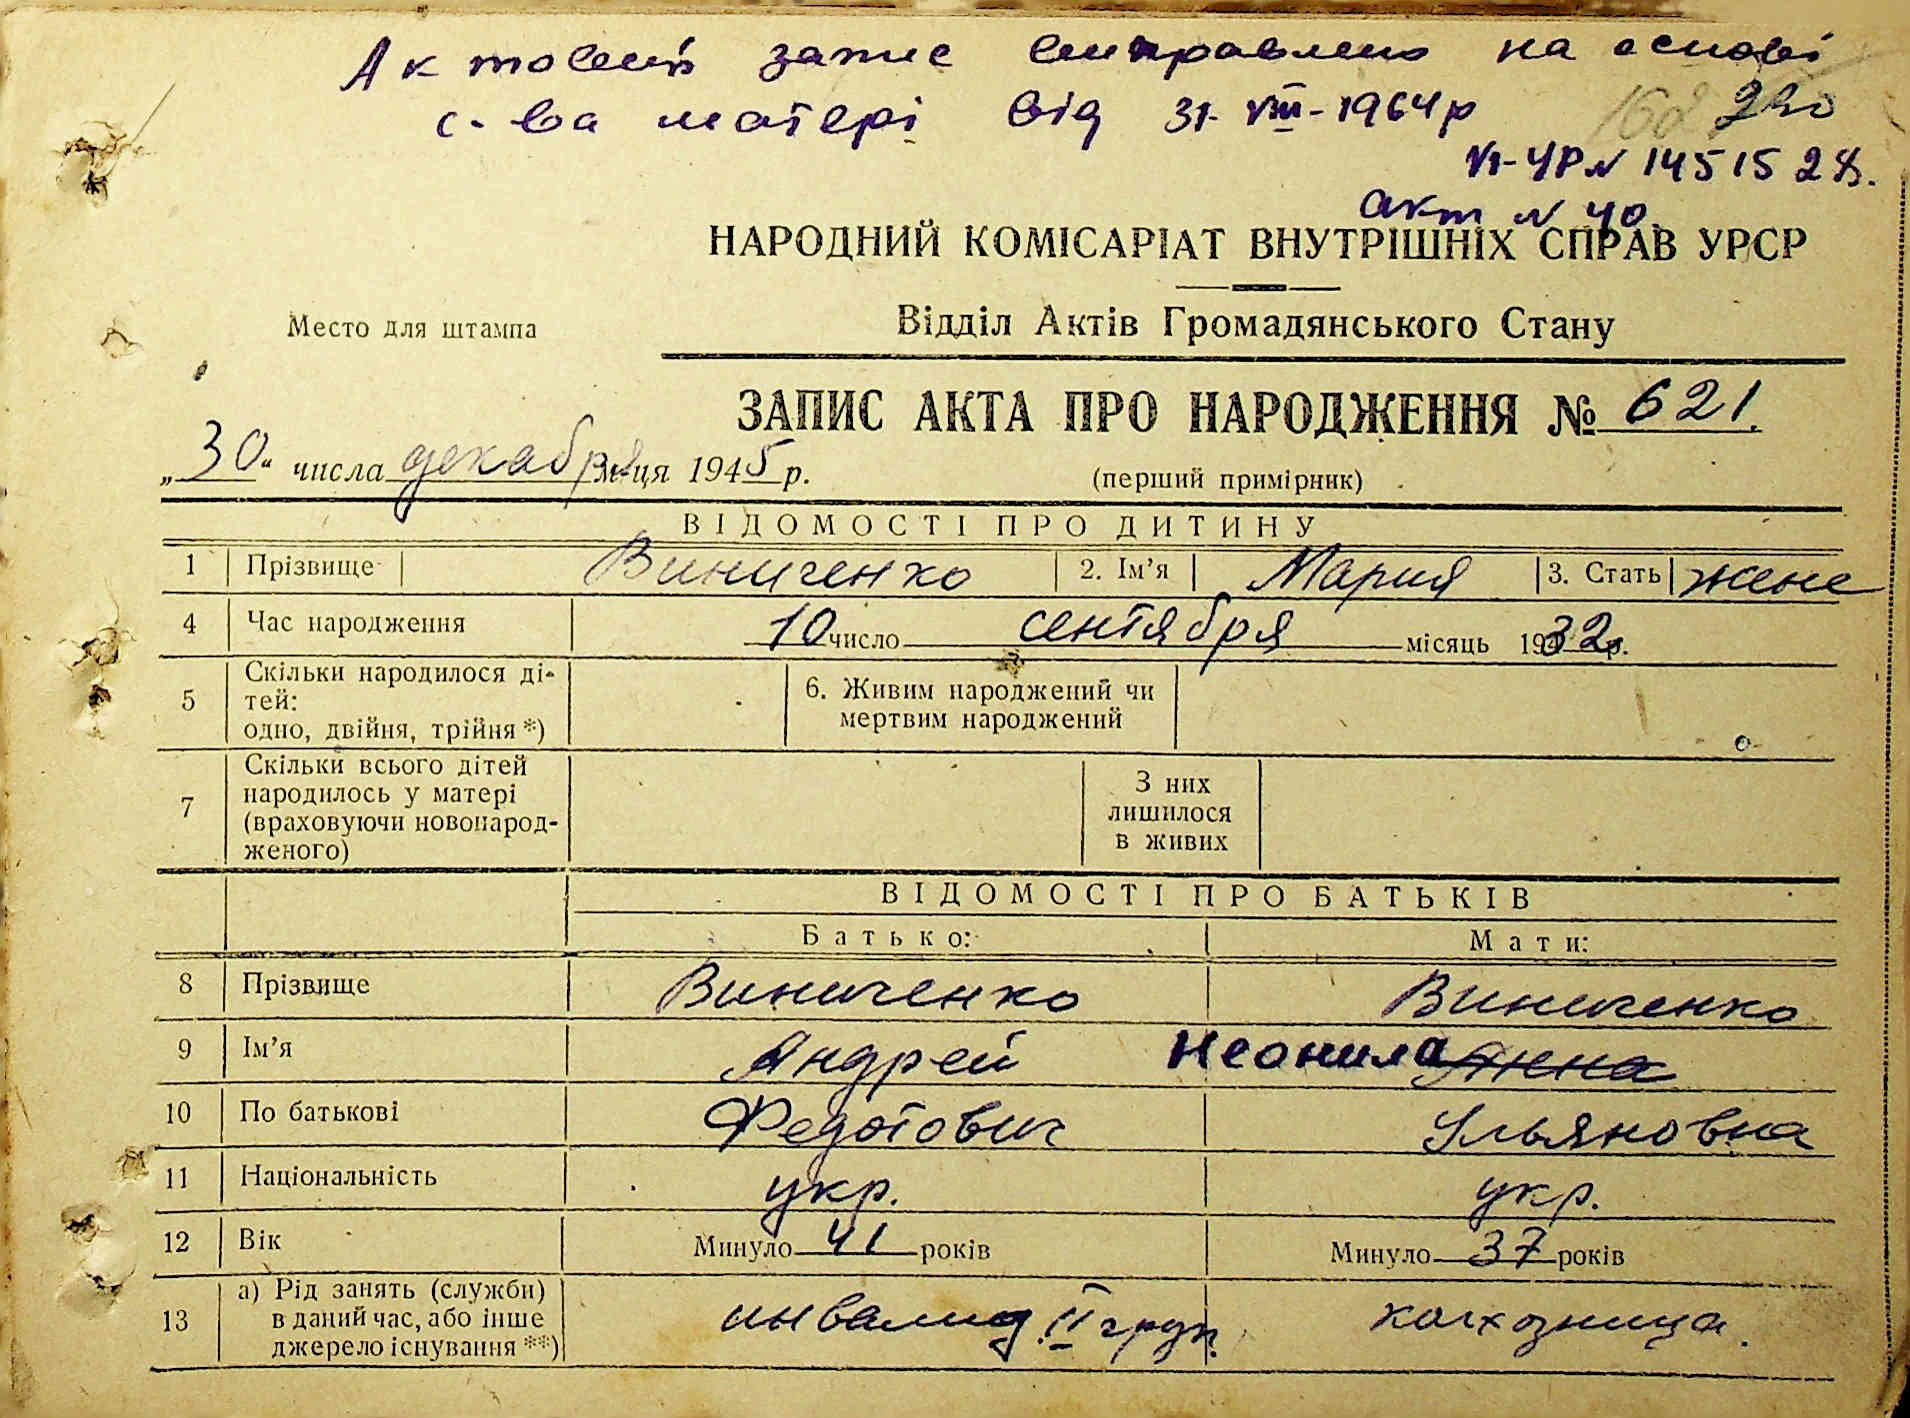 Актовий запис виправлено на основі
с-ва матері від 31-VIII-1964р
VI-УР N 145152 Я.
акт N 40.
НАРОДНИЙ КОМІСАРІАТ ВНУТРІШНІХ СПРАВ УРСР
Место для штампа
Відділ Актів Громадянського Стану
ЗАПИС АКТА ПРО НАРОДЖЕННЯ № 621.
„30" числа декабря м-ця 1945 р.
(перший примірник)
ВІДОМОСТІ ПРО ДИТИНУ
1 Прізвище Виниченко 2. Ім'я Мария 3. Стать жене
4 Час народження 10 число сентября місяць 1932 р.
5 Скільки народилося ді-
тей:
одно, двійня, трійня *)
6. Живим народжений чи
мертвим народжений
7 Скільки всього дітей
народилось у матері
(враховуючи новонарод-
женого)
З них
лишилося
в живих
ВІДОМОСТІ ПРО БАТЬКІВ
Батько: Мати:
8 Прізвище Виниченко Виниченко
9 Ім'я Андрей Неонила Анна
10 По батькові Федотович Ульяновна
11 Національність укр. укр.
12 Вік Минуло 41 років Минуло 37 років
13 а) Рід занять (служби)
в даний час, або інше
джерело існування **)
инвалид II груп. колхозница.